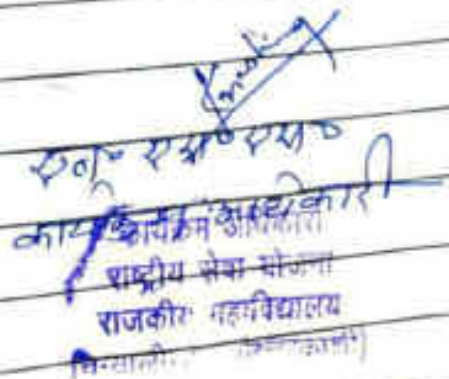 एन० एस० एस०
कार्यक्रम अधिकारी
कार्यक्रम अधिकारी
राष्ट्रीय सेवा योजना
राजकीय महाविद्यालय